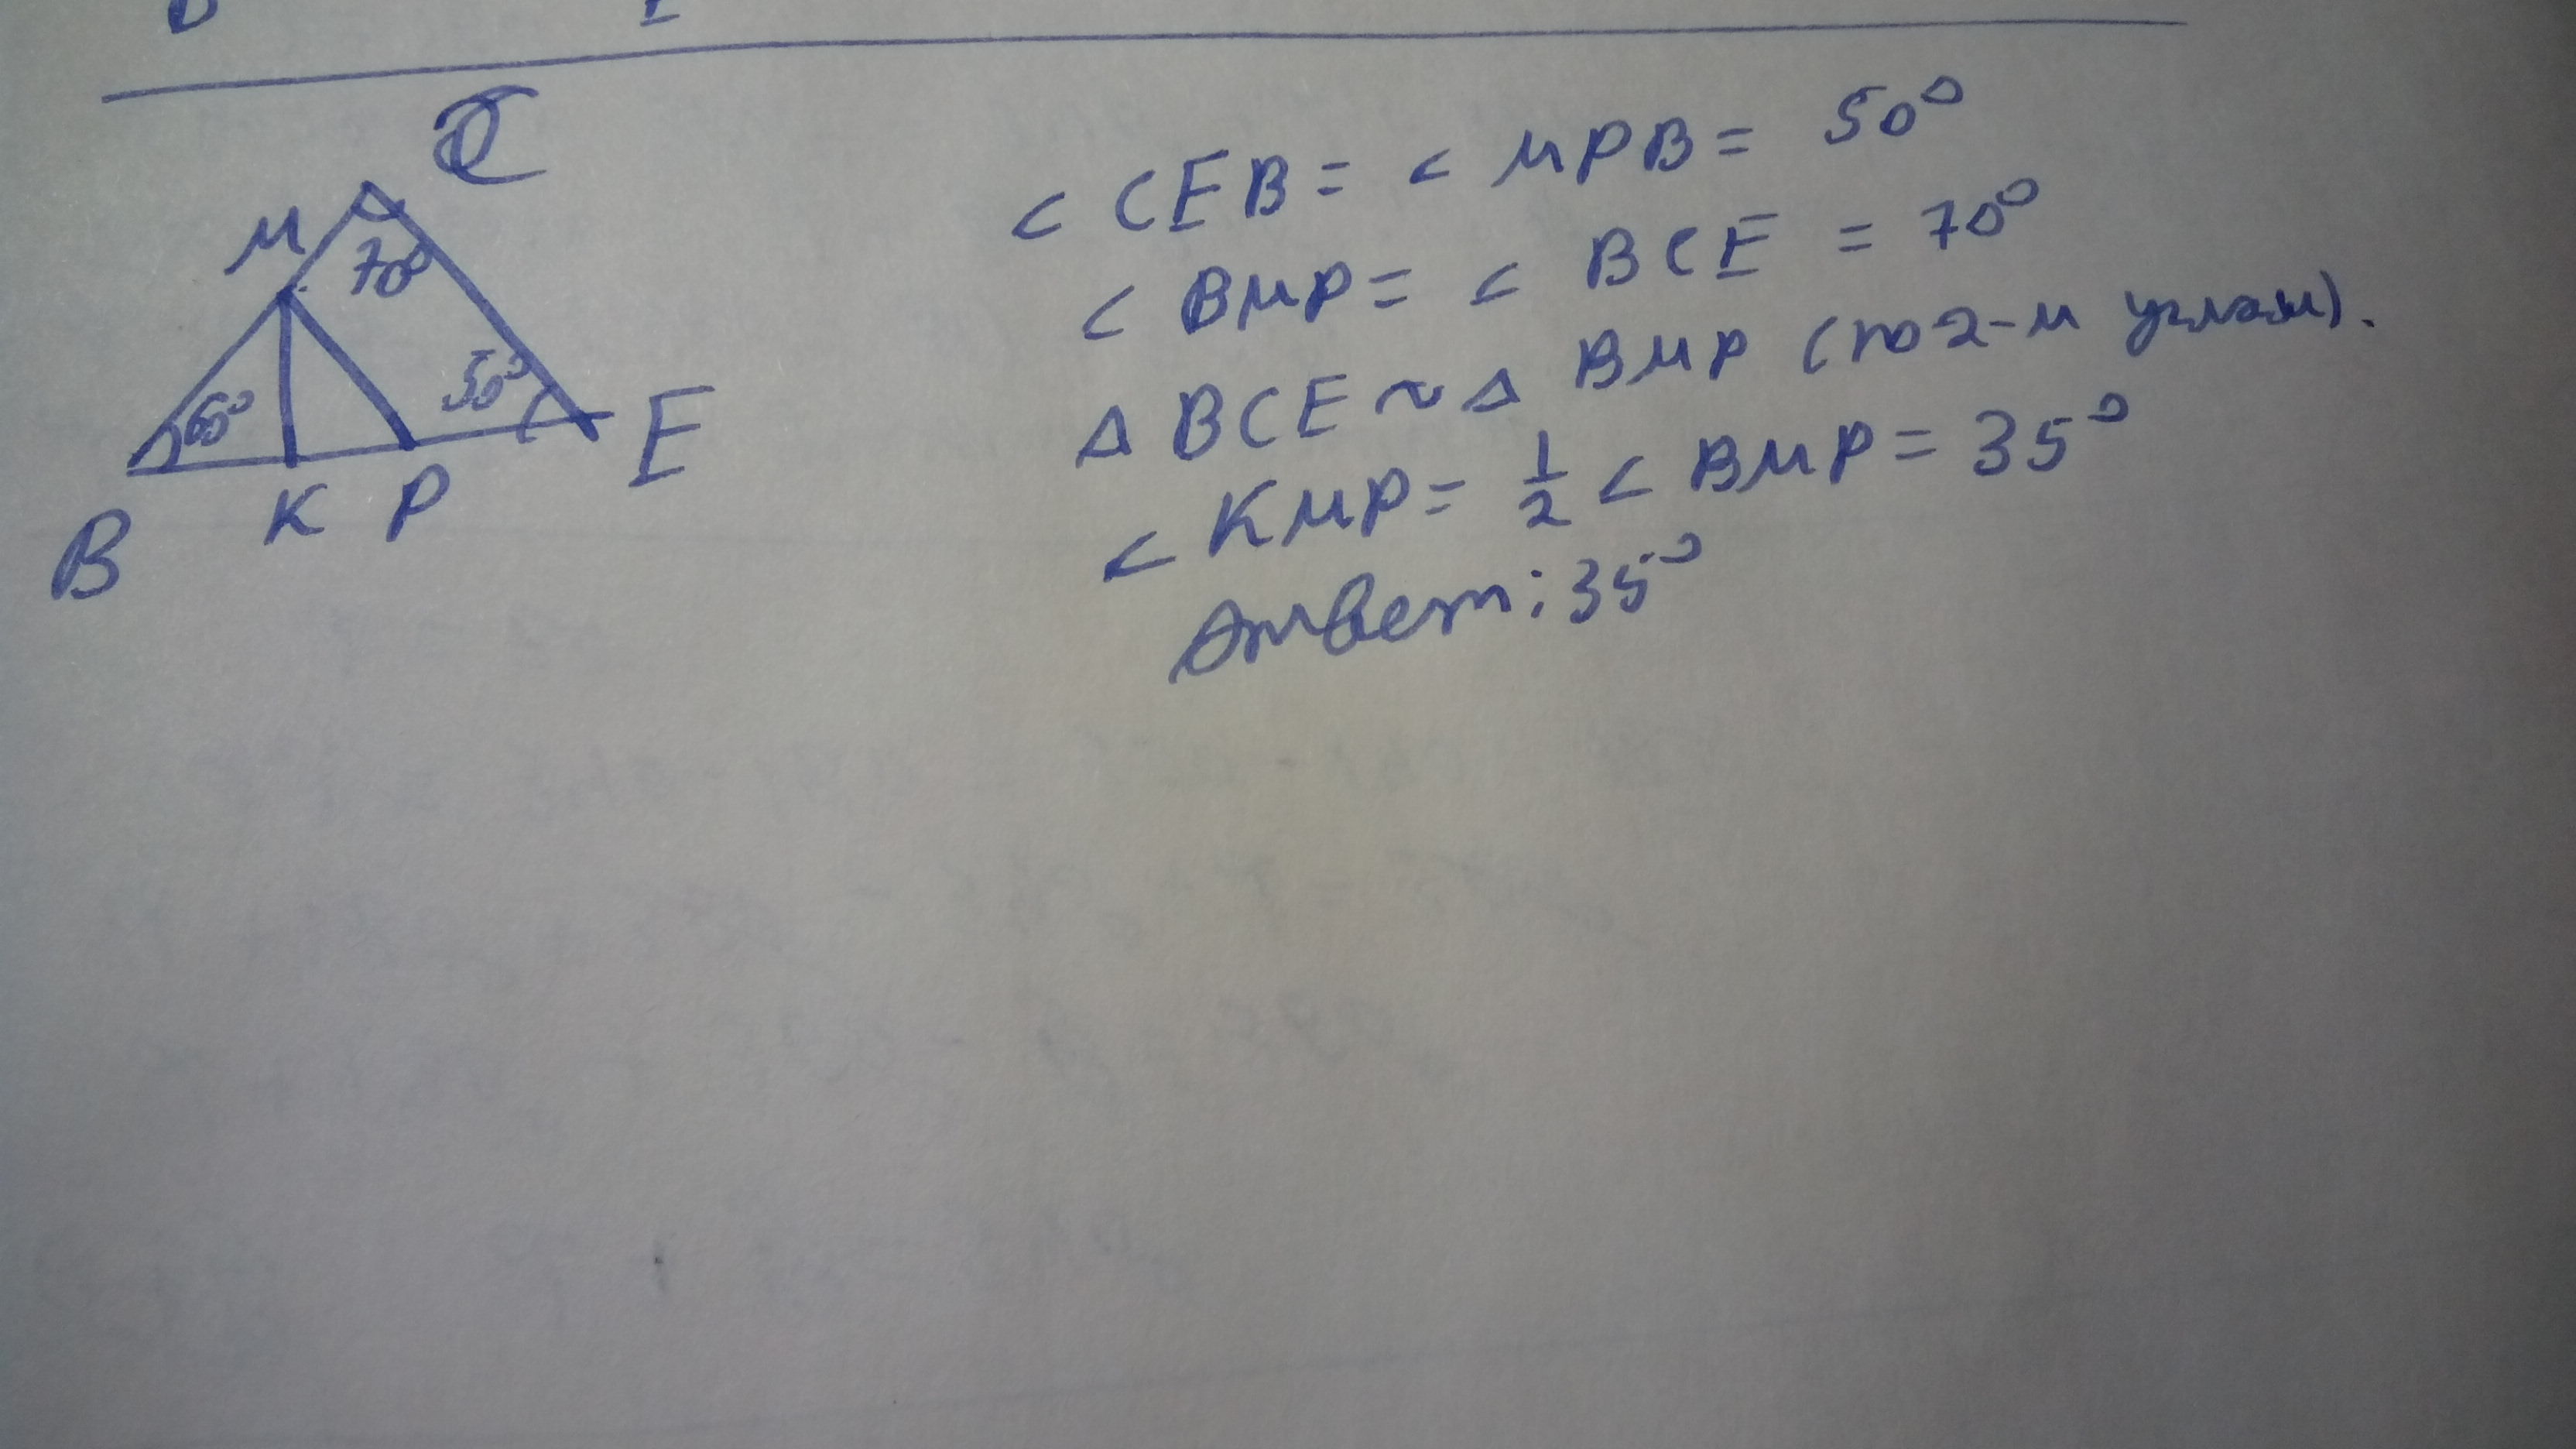 C
M
70°
60°
50°
E
K P
B
< CEB = < MPB = 50°
< BMP = < BCE = 70°
Δ BCE ~ Δ BMP (по 2-м углам).
< KMP = 1/2 < BMP = 35°
Ответ: 35°